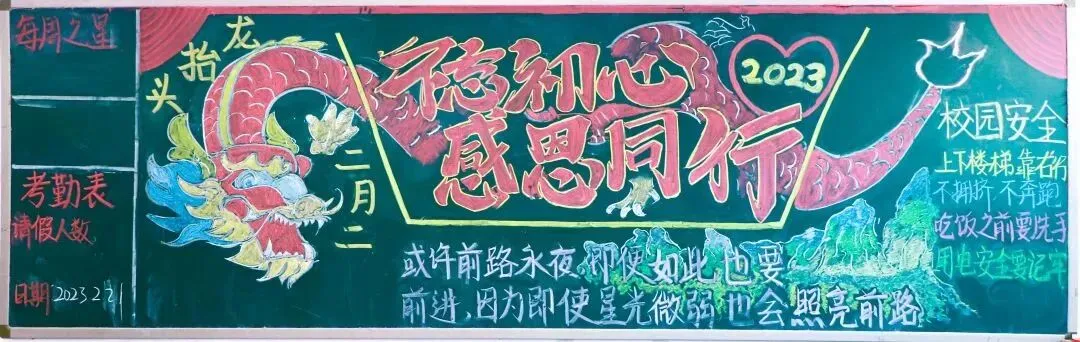 每周之星
考勤表
请假人数
日期 2023 2 21
龙抬头
二月二
不忘初心
感恩同行
2023
或许前路永夜,即便如此也要
前进,因为即使星光微弱也会照亮前路
校园安全
上下楼梯靠右行
不拥挤不奔跑
吃饭之前要洗手
用电安全要记牢